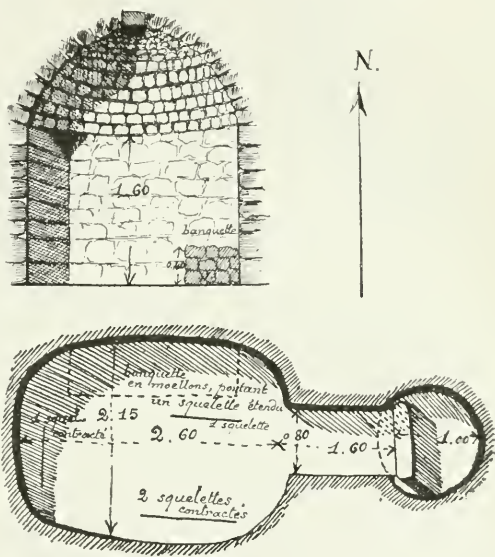 N.
1.60
banquette
0.40
banquette
en moellons, portant
un squelette étendu
1 squelette
1 squel.
contracté
2.15
2.60
0.80
1.60
1.00
2 squelettes
contractés